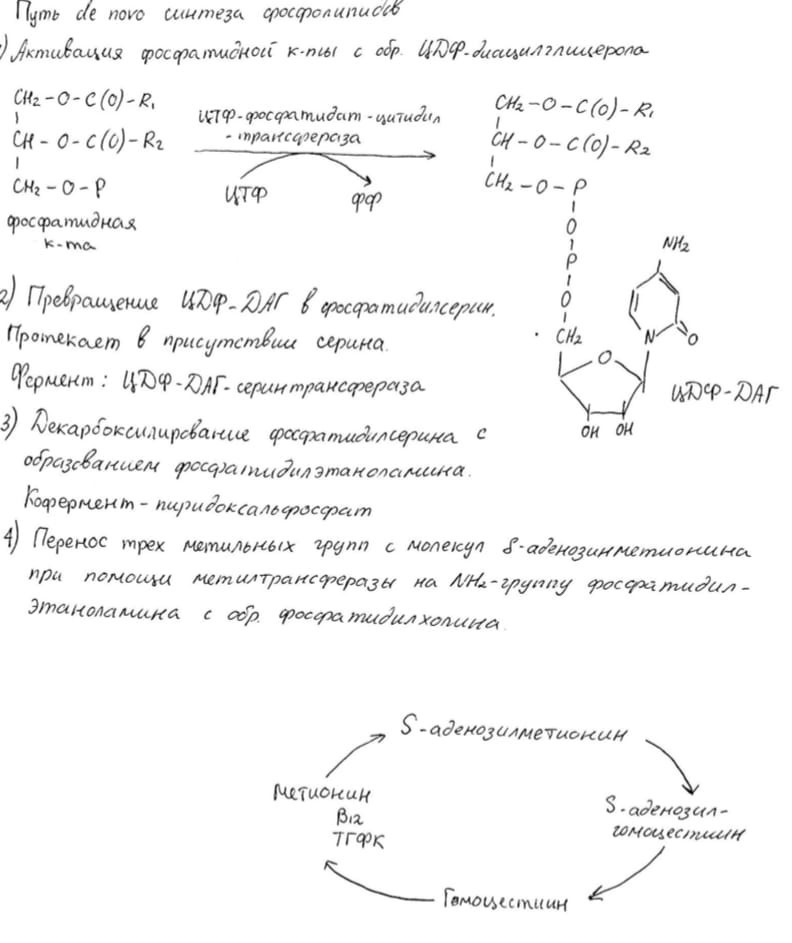 Путь de novo синтеза фосфолипидов
) Активация фосфатидной к-ты с обр. ЦДФ-диацилглицерола
CH2-O-C(O)-R1
CH-O-C(O)-R2
CH2-O-P
фосфатидная
к-та
ЦТФ-фосфатидат-цитидил
-трансфераза
ЦТФ
ФФ
CH2-O-C(O)-R1
CH-O-C(O)-R2
CH2-O-P
O
P
O
CH2
O
NH2
N
O
OH OH
ЦДФ-ДАГ
2) Превращение ЦДФ-ДАГ в фосфатидилсерин.
Протекает в присутствии серина.
Фермент: ЦДФ-ДАГ-серинтрансфераза
3) Декарбоксилирование фосфатидилсерина с
образованием фосфатидилэтаноламина.
Кофермент - пиридоксальфосфат
4) Перенос трех метильных групп с молекул S-аденозинметионина
при помощи метилтрансферазы на NH2-группу фосфатидил-
этаноламина с обр. фосфатидилхолина.
S-аденозилметионин
Метионин
B12
ТГФК
S-аденозил-
гомоцестиин
Гомоцестиин